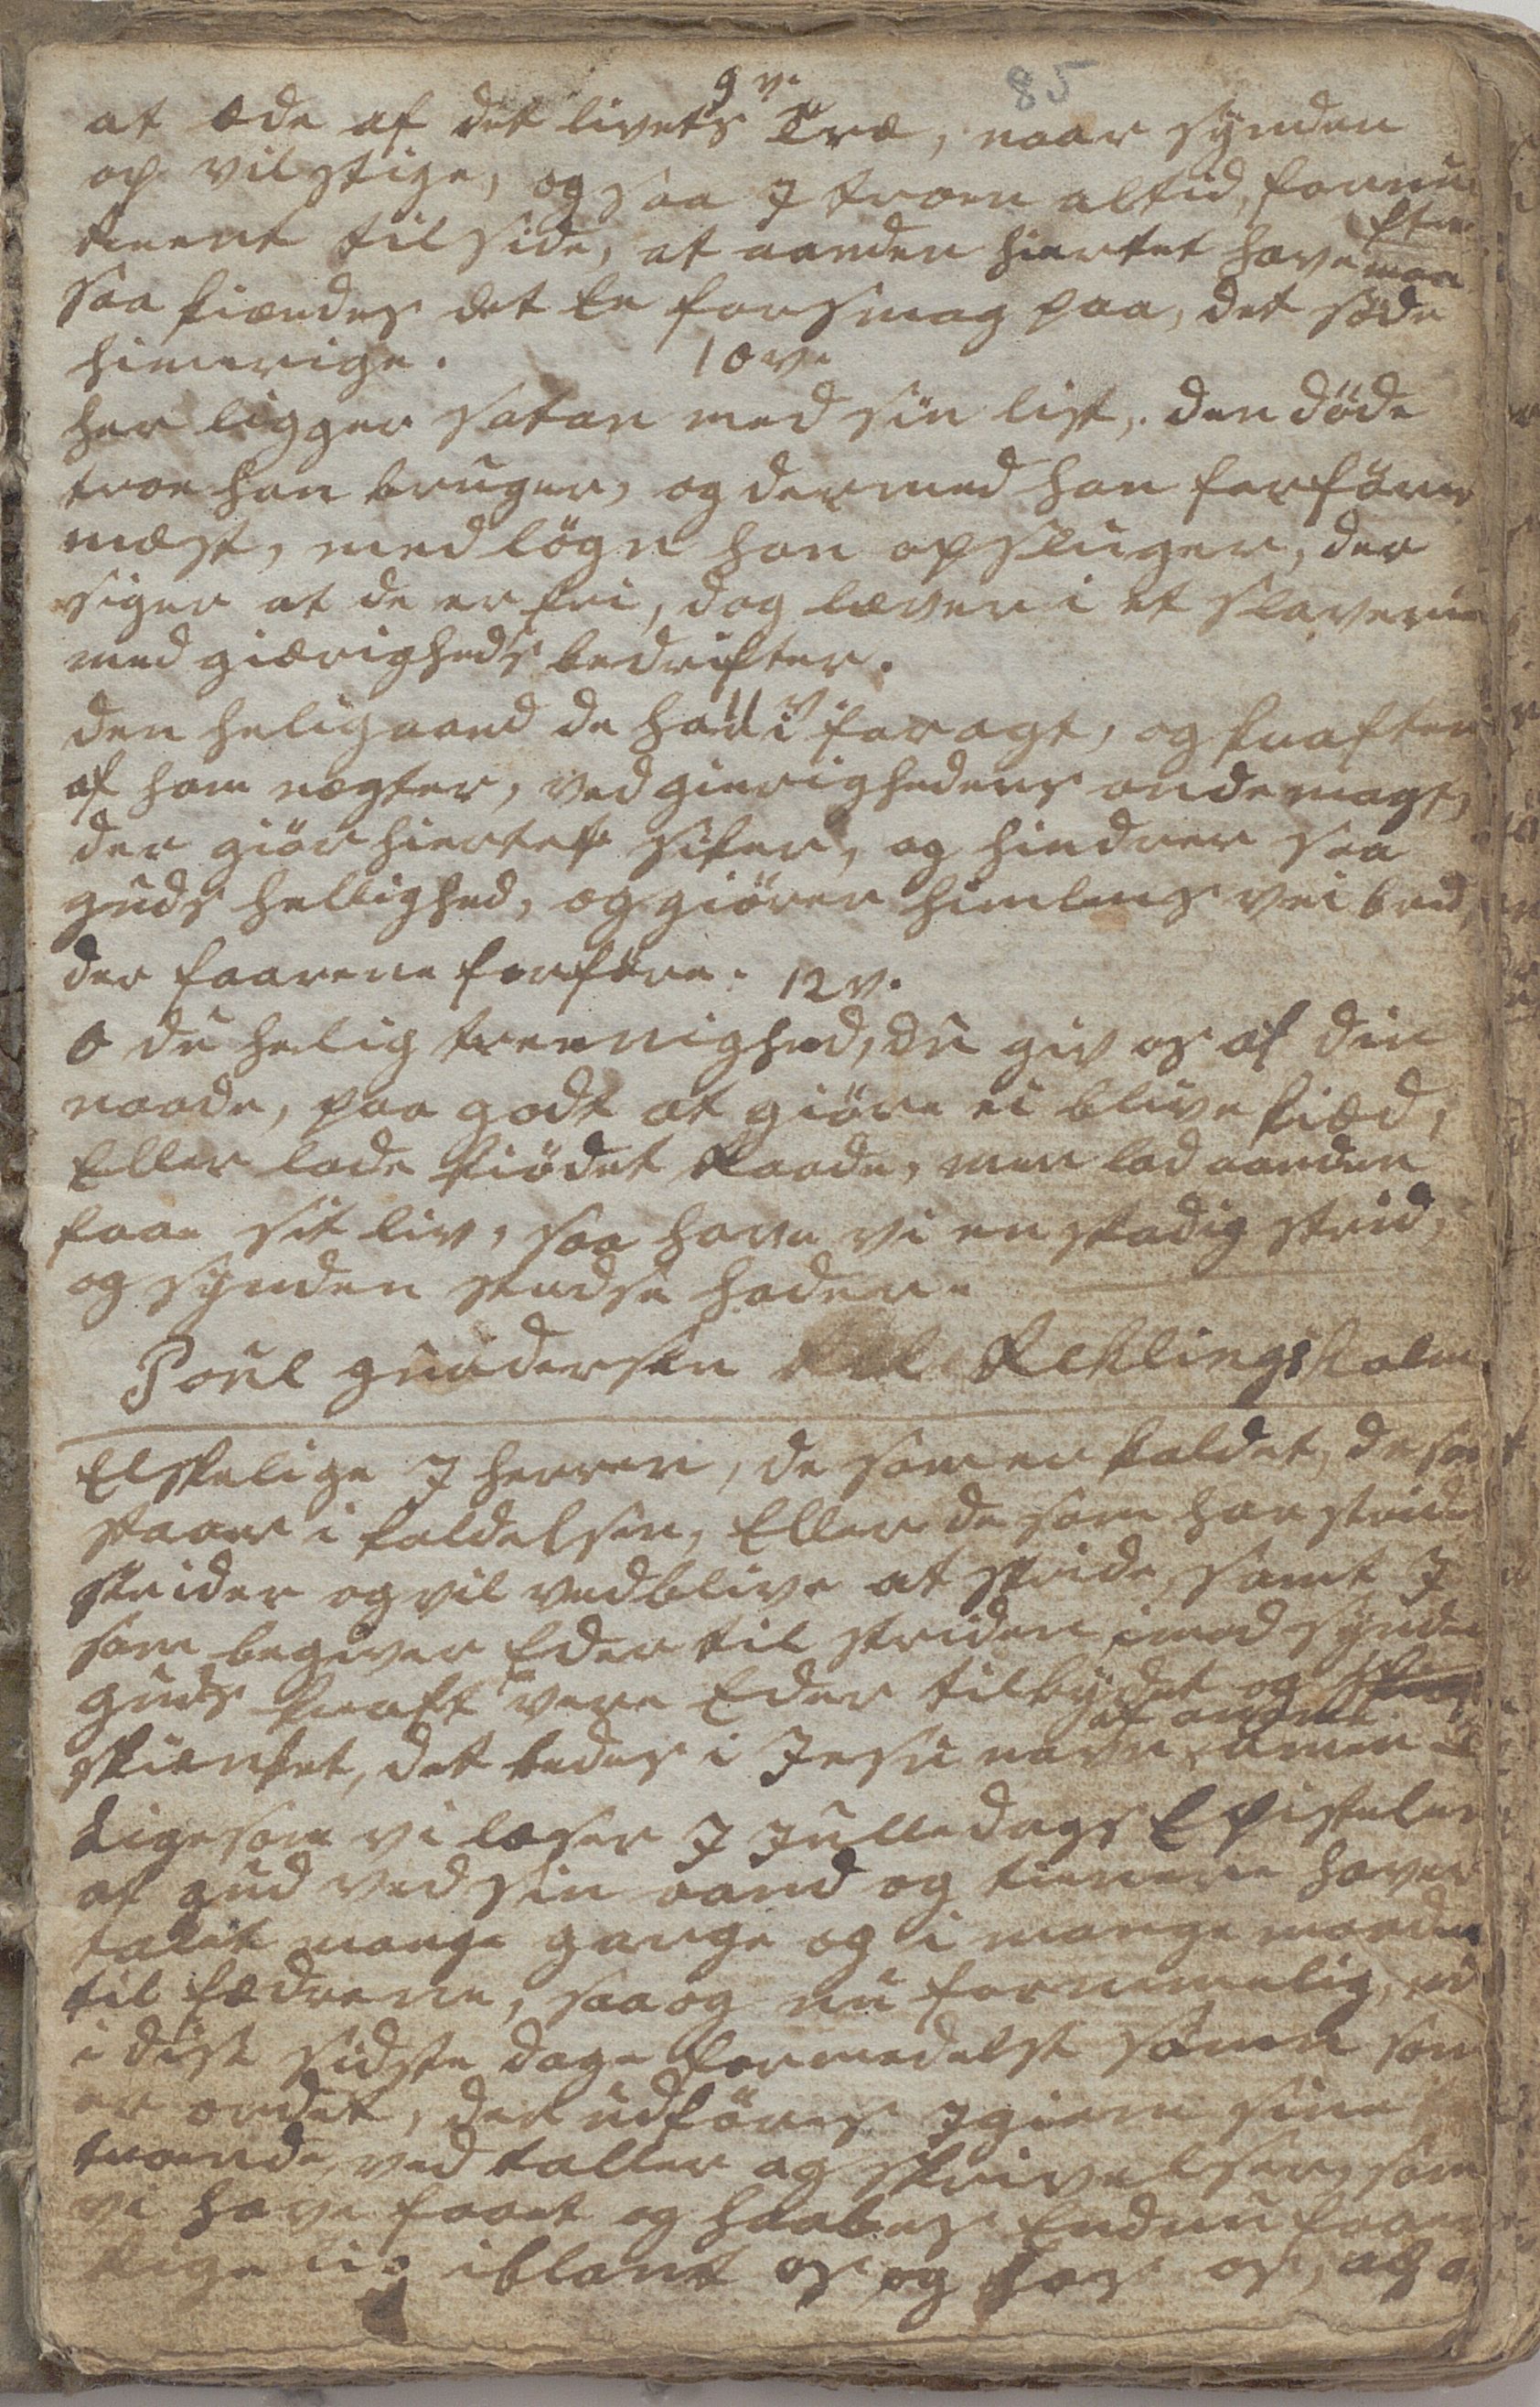 9 v.
85
at æde af det livets Træ, naar synden
op vil stige, og saa J troen altid, fornu
tienent til side, at aanden hiertet have maa
saa kiendes det En forsmag paa, det søde
himerige.
10 v.
her ligger satan med sin list, den döde
troe han bruger, og dermed han forförer
mæst, med lögn han opsluger, der
siger at de er fri, dog lever i et slaverie
med giærigheds bedrifter.
11 v.
den helig aand de har i foragt, og kraften
af ham nægter, ved gierighedens onde magt,
der giör hiertet sikker, og hindrer saa
guds hellighed, og giörer himlens vei bred,
der faarene forföre.
12 v.
O du helig treenighed, du giv os af din
naade, paa godt at giöre ei blive kied,
Eller lade kiödet Raade, men lad aanden
faae sit liv, saa have vi en stadig strid,
og synden stedse hader.
Poul gundersen Reklingsholm
Elskelige J herren, de som er kaldet, de som
staaer i kaldelsen, Eller de som har stridt
strider og vil vedblive at stride, samt J
som begiver Eder til striden imod synden
guds kraft være Eder tilbydet og
skienket, det bedes i Jesu navn, amen
Ligesom vi læser J Julledags Epistelen
at gud ved sin aand og tienere haver
talet mange gange og i mange maader
til fædrene, saa og nu fornemelig, vi
i disse sidste dage formedelst sönen som
er ordet, der udföres Jgiem sine
troende, ved taller og skrivelser, som
vi have faaet og haabes Endnu faar
iblant os og hos os, at